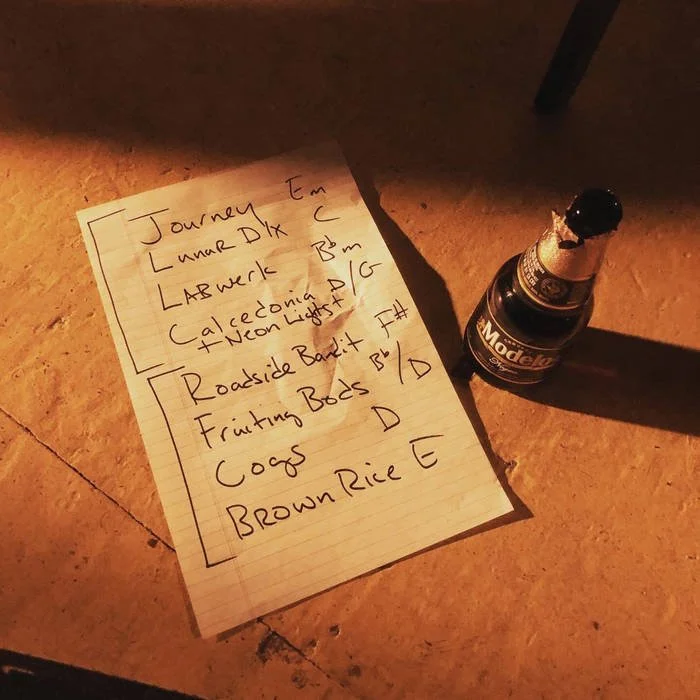 Journey Em
Lunar D'lx C
LABwerk Bbm
Calcedonia D/G
+ Neon Lights+
Roadside Bandit F#
Fruiting Bods Bb/D
Cogs D
Brown Rice E
Modelo